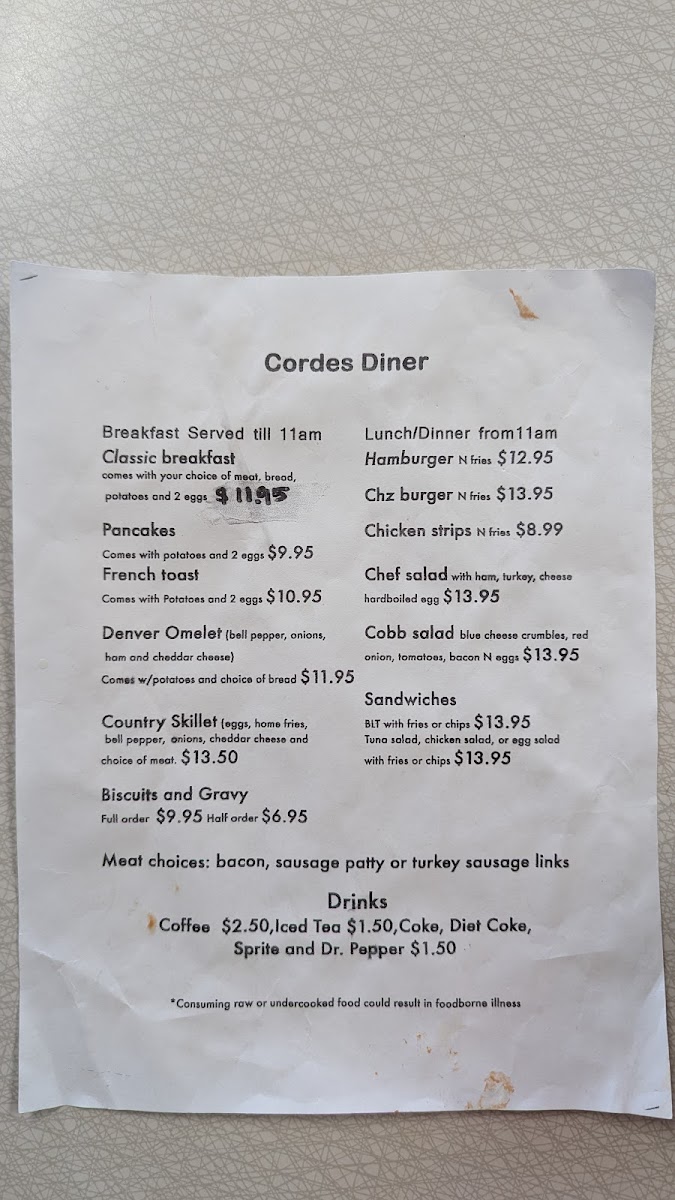 Cordes Diner
Breakfast Served till 11am
Classic breakfast
comes with your choice of meat, bread,
potatoes and 2 eggs $11.95
Pancakes
Comes with potatoes and 2 eggs $9.95
French toast
Comes with Potatoes and 2 eggs $10.95
Denver Omelet (bell pepper, onions,
ham and cheddar cheese)
Comes w/potatoes and choice of bread $11.95
Country Skillet (eggs, home fries,
bell pepper, onions, cheddar cheese and
choice of meat. $13.50
Biscuits and Gravy
Full order $9.95 Half order $6.95
Lunch/Dinner from11am
Hamburger N fries $12.95
Chz burger N fries $13.95
Chicken strips N fries $8.99
Chef salad with ham, turkey, cheese
hardboiled egg $13.95
Cobb salad blue cheese crumbles, red
onion, tomatoes, bacon N eggs $13.95
Sandwiches
BLT with fries or chips $13.95
Tuna salad, chicken salad, or egg salad
with fries or chips $13.95
Meat choices: bacon, sausage patty or turkey sausage links
Drinks
Coffee $2.50,Iced Tea $1.50,Coke, Diet Coke,
Sprite and Dr. Pepper $1.50
*Consuming raw or undercooked food could result in foodborne illness